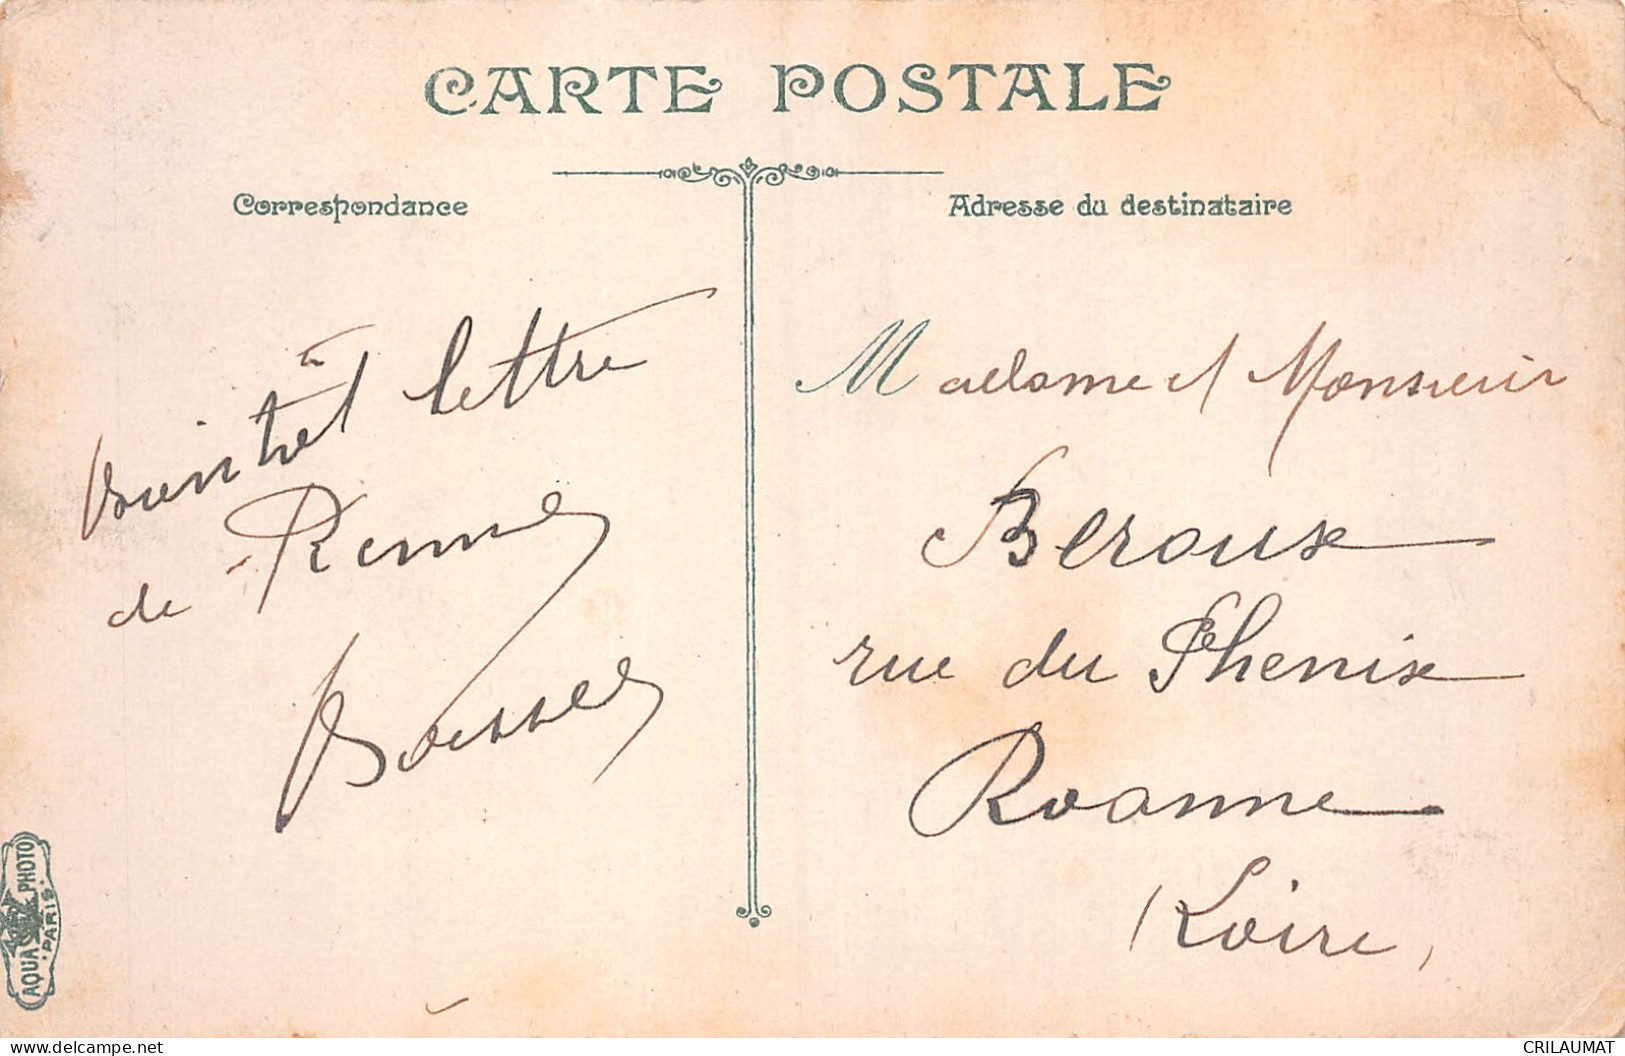 CARTE POSTALE
Correspondance
Adresse du destinataire
lettre
de Rennes
Madame et Monsieur
Beroux
rue du Phenix
Roanne
(Loire)
AQUA PHOTO
PARIS
CRILAUMAT